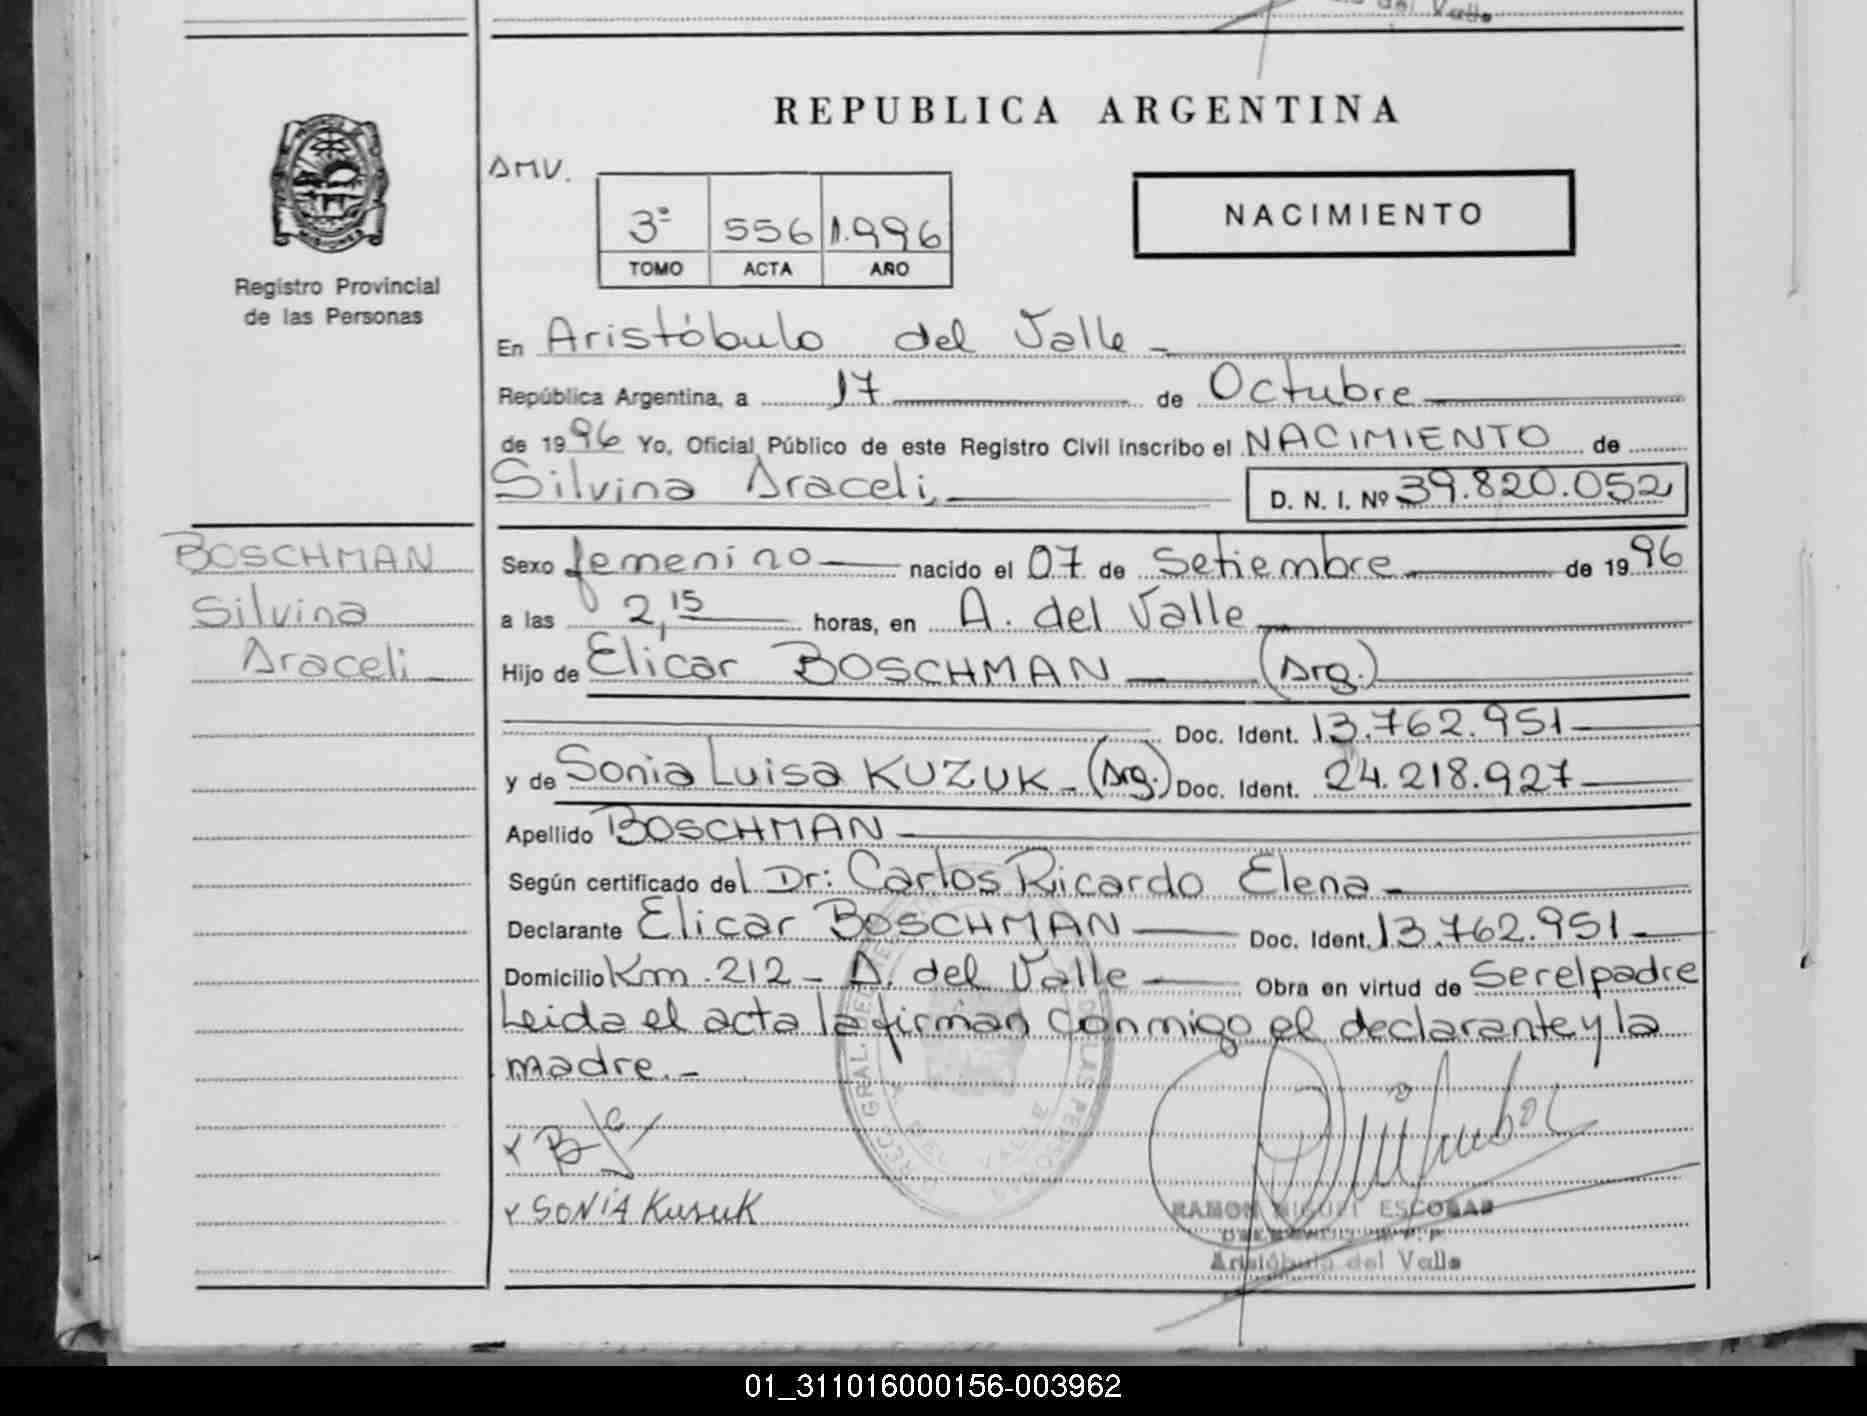 del Valle
REPUBLICA ARGENTINA
AMV.
3º 556 1.996
TOMO ACTA AÑO
NACIMIENTO
Registro Provincial
de las Personas
En Aristóbulo del Valle -
República Argentina, a 17 de Octubre
de 1996 Yo, Oficial Público de este Registro Civil inscribo el NACIMIENTO de
Silvina Araceli, D. N. I. Nº 39.820.052
BOSCHMAN
Silvina
Araceli
Sexo femenino nacido el 07 de Setiembre de 1996
a las 2,15 horas, en A. del Valle
Hijo de Elicar BOSCHMAN (Arg.)
Doc. Ident. 13.762.951
y de Sonia Luisa KUZUK - (Arg.) Doc. Ident. 24.218.927
Apellido BOSCHMAN
Según certificado del Dr: Carlos Ricardo Elena -
Declarante Elicar BOSCHMAN Doc. Ident. 13.762.951
Domicilio Km. 212 - A. del Valle Obra en virtud de Ser el padre
Leida el acta la firman conmigo el declarante y la
madre. -
x SONiA Kusuk
RAMON MIGUEL ESCOBAR
Aristóbulo del Valle
01_311016000156-003962